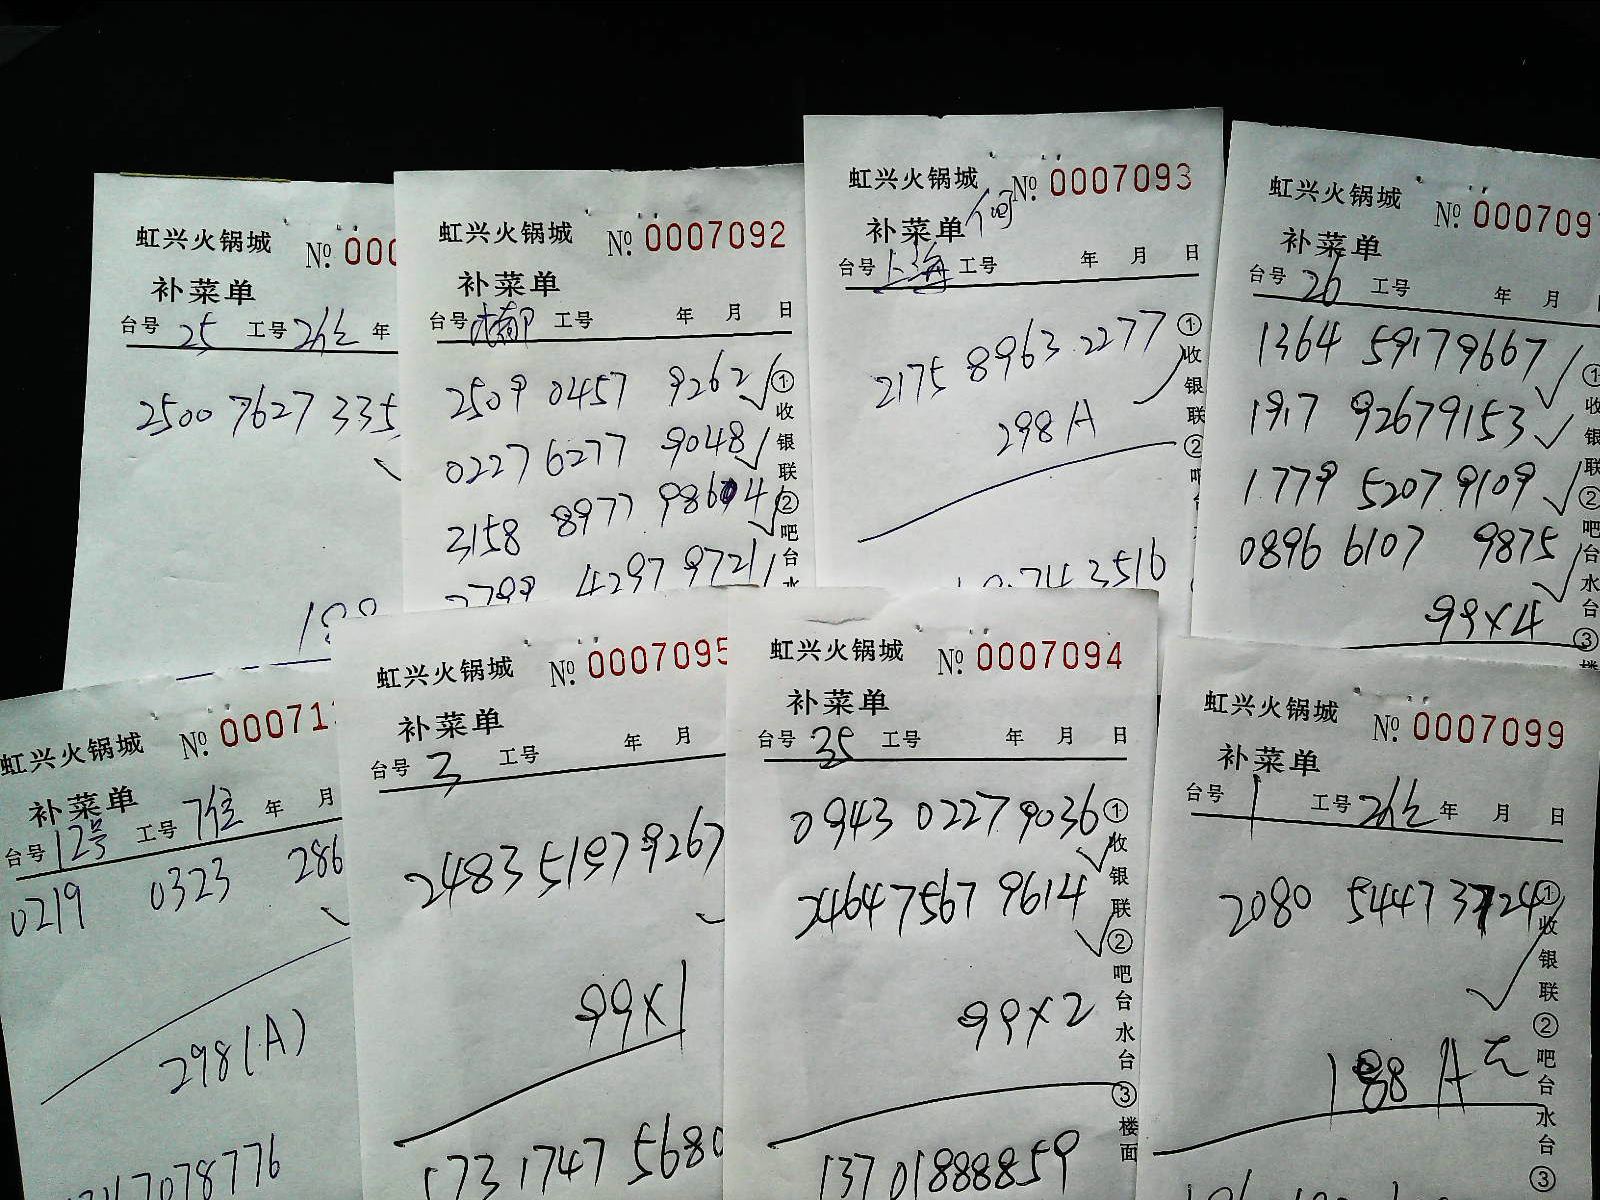 虹兴火锅城 №. 000
补菜单
台号 25 工号 年
2500 7627 335
虹兴火锅城 №. 0007092
补菜单
台号 成都 工号 年 月 日
2509 0457 9262
0227 6277 9048
3158 8977 98604
4297 9721
①收银联②吧台水
虹兴火锅城 №. 0007093
补菜单
台号 上海 工号 年 月 日
2175 8963 2277
298 A
3516
①收银联②吧
虹兴火锅城 №. 000709
补菜单
台号 26 工号 年 月
1364 59179667
1917 92679153
1779 52079109
0896 6107 9875
99×4
①收银联②吧台水台③楼
虹兴火锅城 №. 00071
补菜单
台号 12号 工号 年 月
0219 0323 286
298(A)
7078776
虹兴火锅城 №. 0007095
补菜单
台号 3 工号 年 月
2483 5197 9267
99×1
173 1747 5680
虹兴火锅城 №. 0007094
补菜单
台号 35 工号 年 月 日
0943 0227 9036
2464 7567 9614
99×2
13701888859
①收银联②吧台水台③楼面
虹兴火锅城 №. 0007099
补菜单
台号 1 工号 年 月 日
2080 5447 3724
188 A
①收银联②吧台水台③